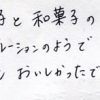 子と和菓子の
レーションのようで
おいしかったで